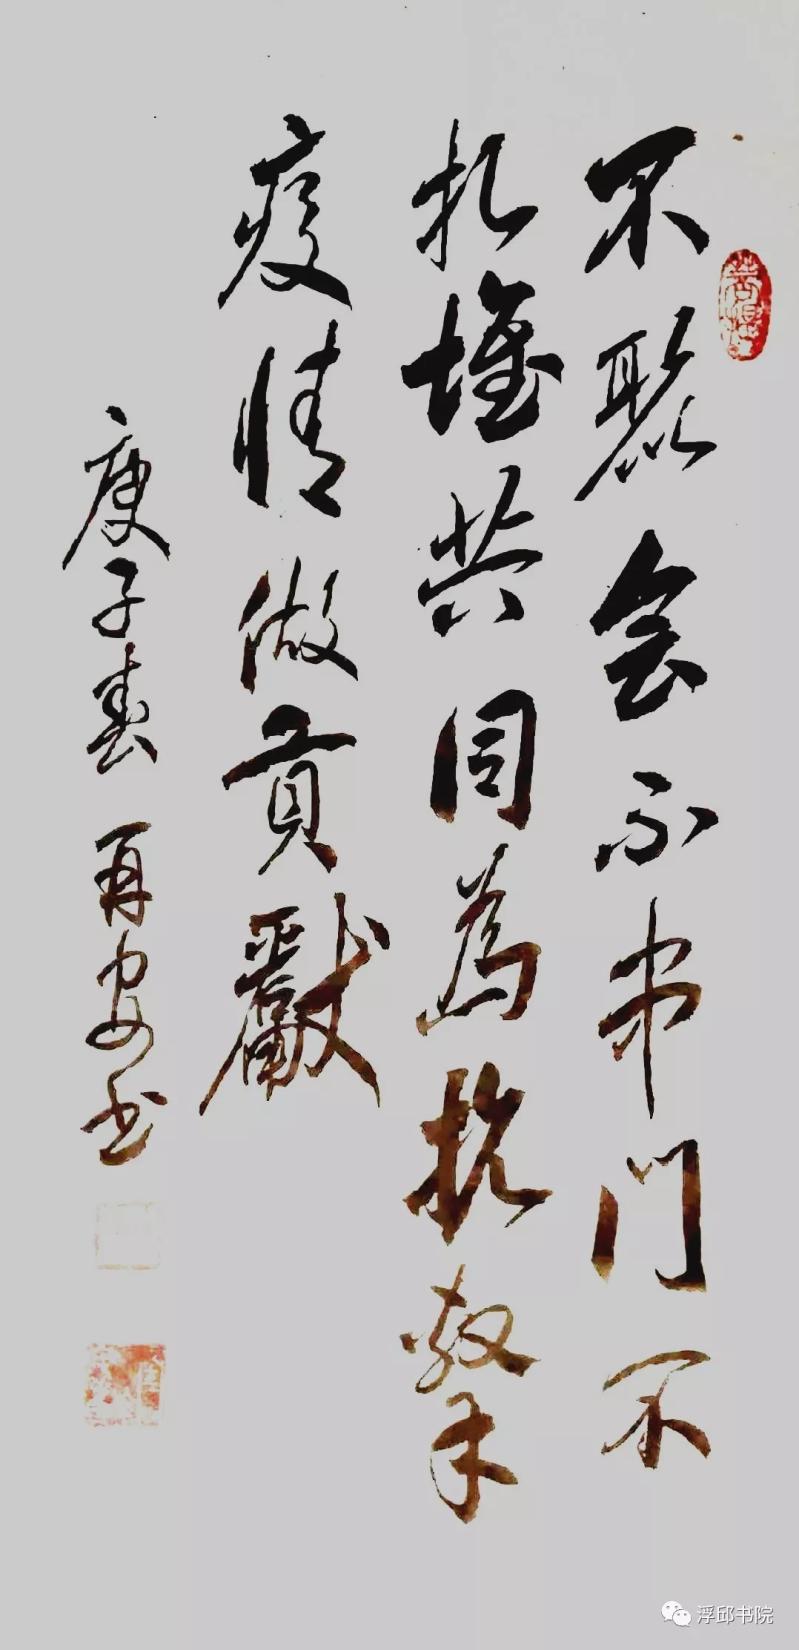 不聚会不串门不
扎堆共同為抗擊
疫情做貢獻
庚子春 再安书
浮邱书院